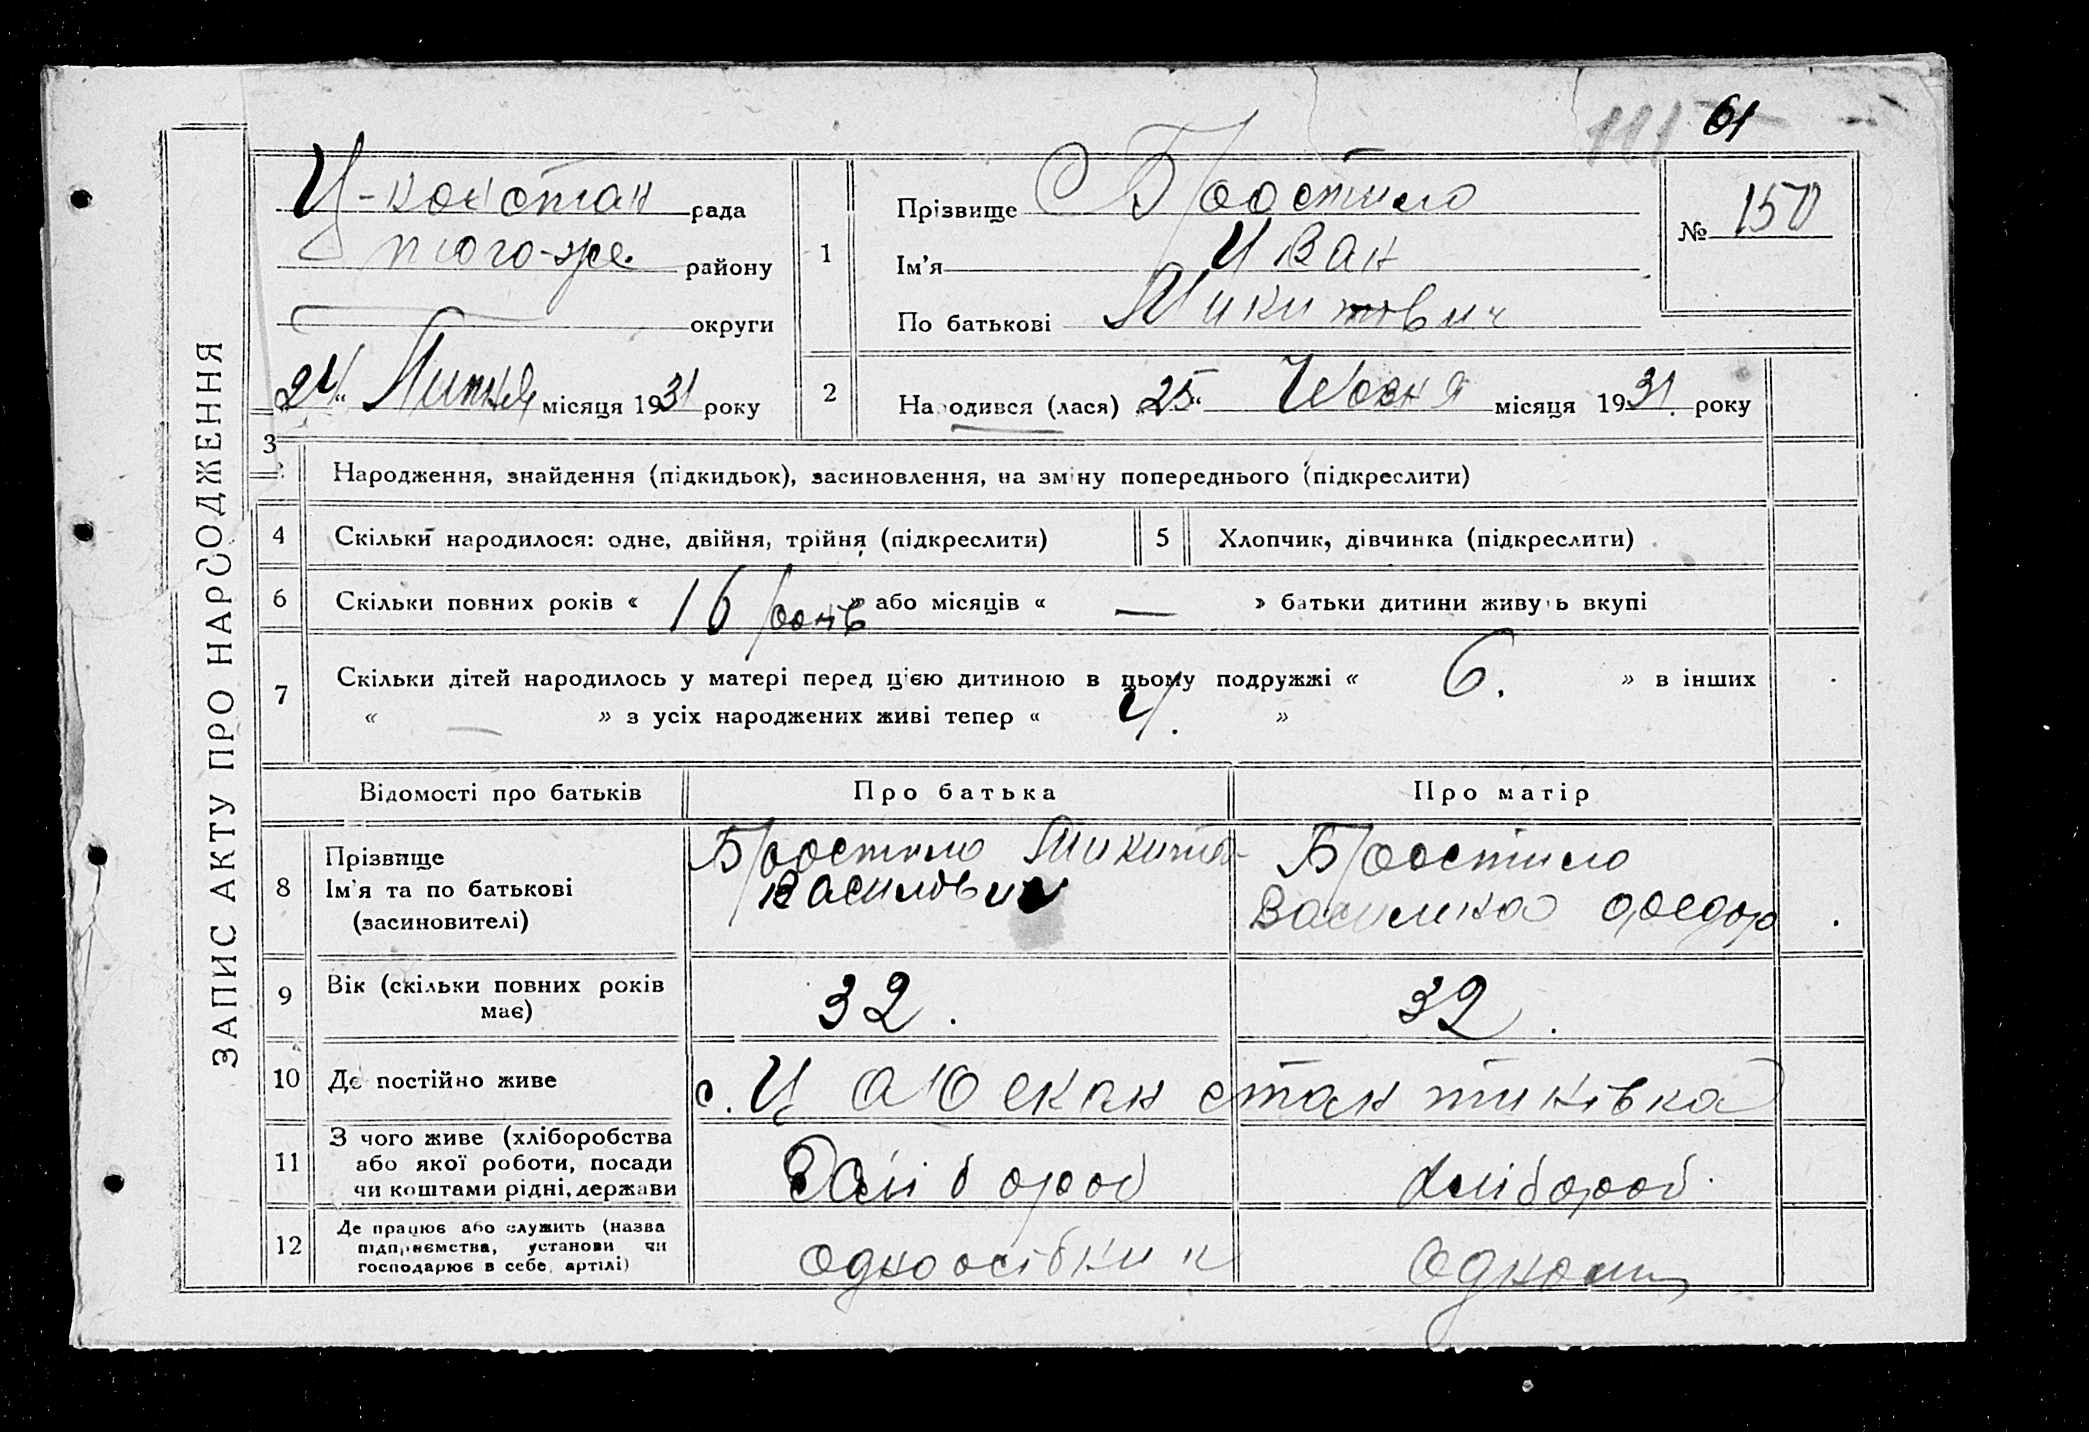 61
ЗАПИС АКТУ ПРО НАРОДЖЕННЯ
Ц-констан рада
того-же району
округи
24 " Липня місяця 1931 року
1
Прізвище Бростило
Ім'я Иван
По батькові Микитович
№ 150
2
Народився (лася) 25 " Червня місяця 1931 року
3
Народження, знайдення (підкидьок), засиновлення, на зміну попереднього (підкреслити)
4 Скільки народилося: одне, двійня, трійня (підкреслити)
5 Хлопчик, дівчинка (підкреслити)
6 Скільки повних років « 16 рокив » або місяців « — » батьки дитини живуть вкупі
7 Скільки дітей народилось у матері перед цією дитиною в цьому подружжі « 6. » в інших
« — » з усіх народжених живі тепер « 4. »
Відомості про батьків
Про батька
Про матір
8 Прізвище
Ім'я та по батькові
(засиновителі)
Бростило Микита
Василович
Бростило
Василиса Федор
9 Вік (скільки повних років
має)
32.
32.
10 Де постійно живе
с. Ц
стантиновка
11 З чого живе (хліборобства
або якої роботи, посади
чи коштами рідні, держави
хлібороб
хлібороб.
12 Де працює або служить (назва
підприємства, установи чи
господарює в себе, артілі)
одноосібник
одноосі